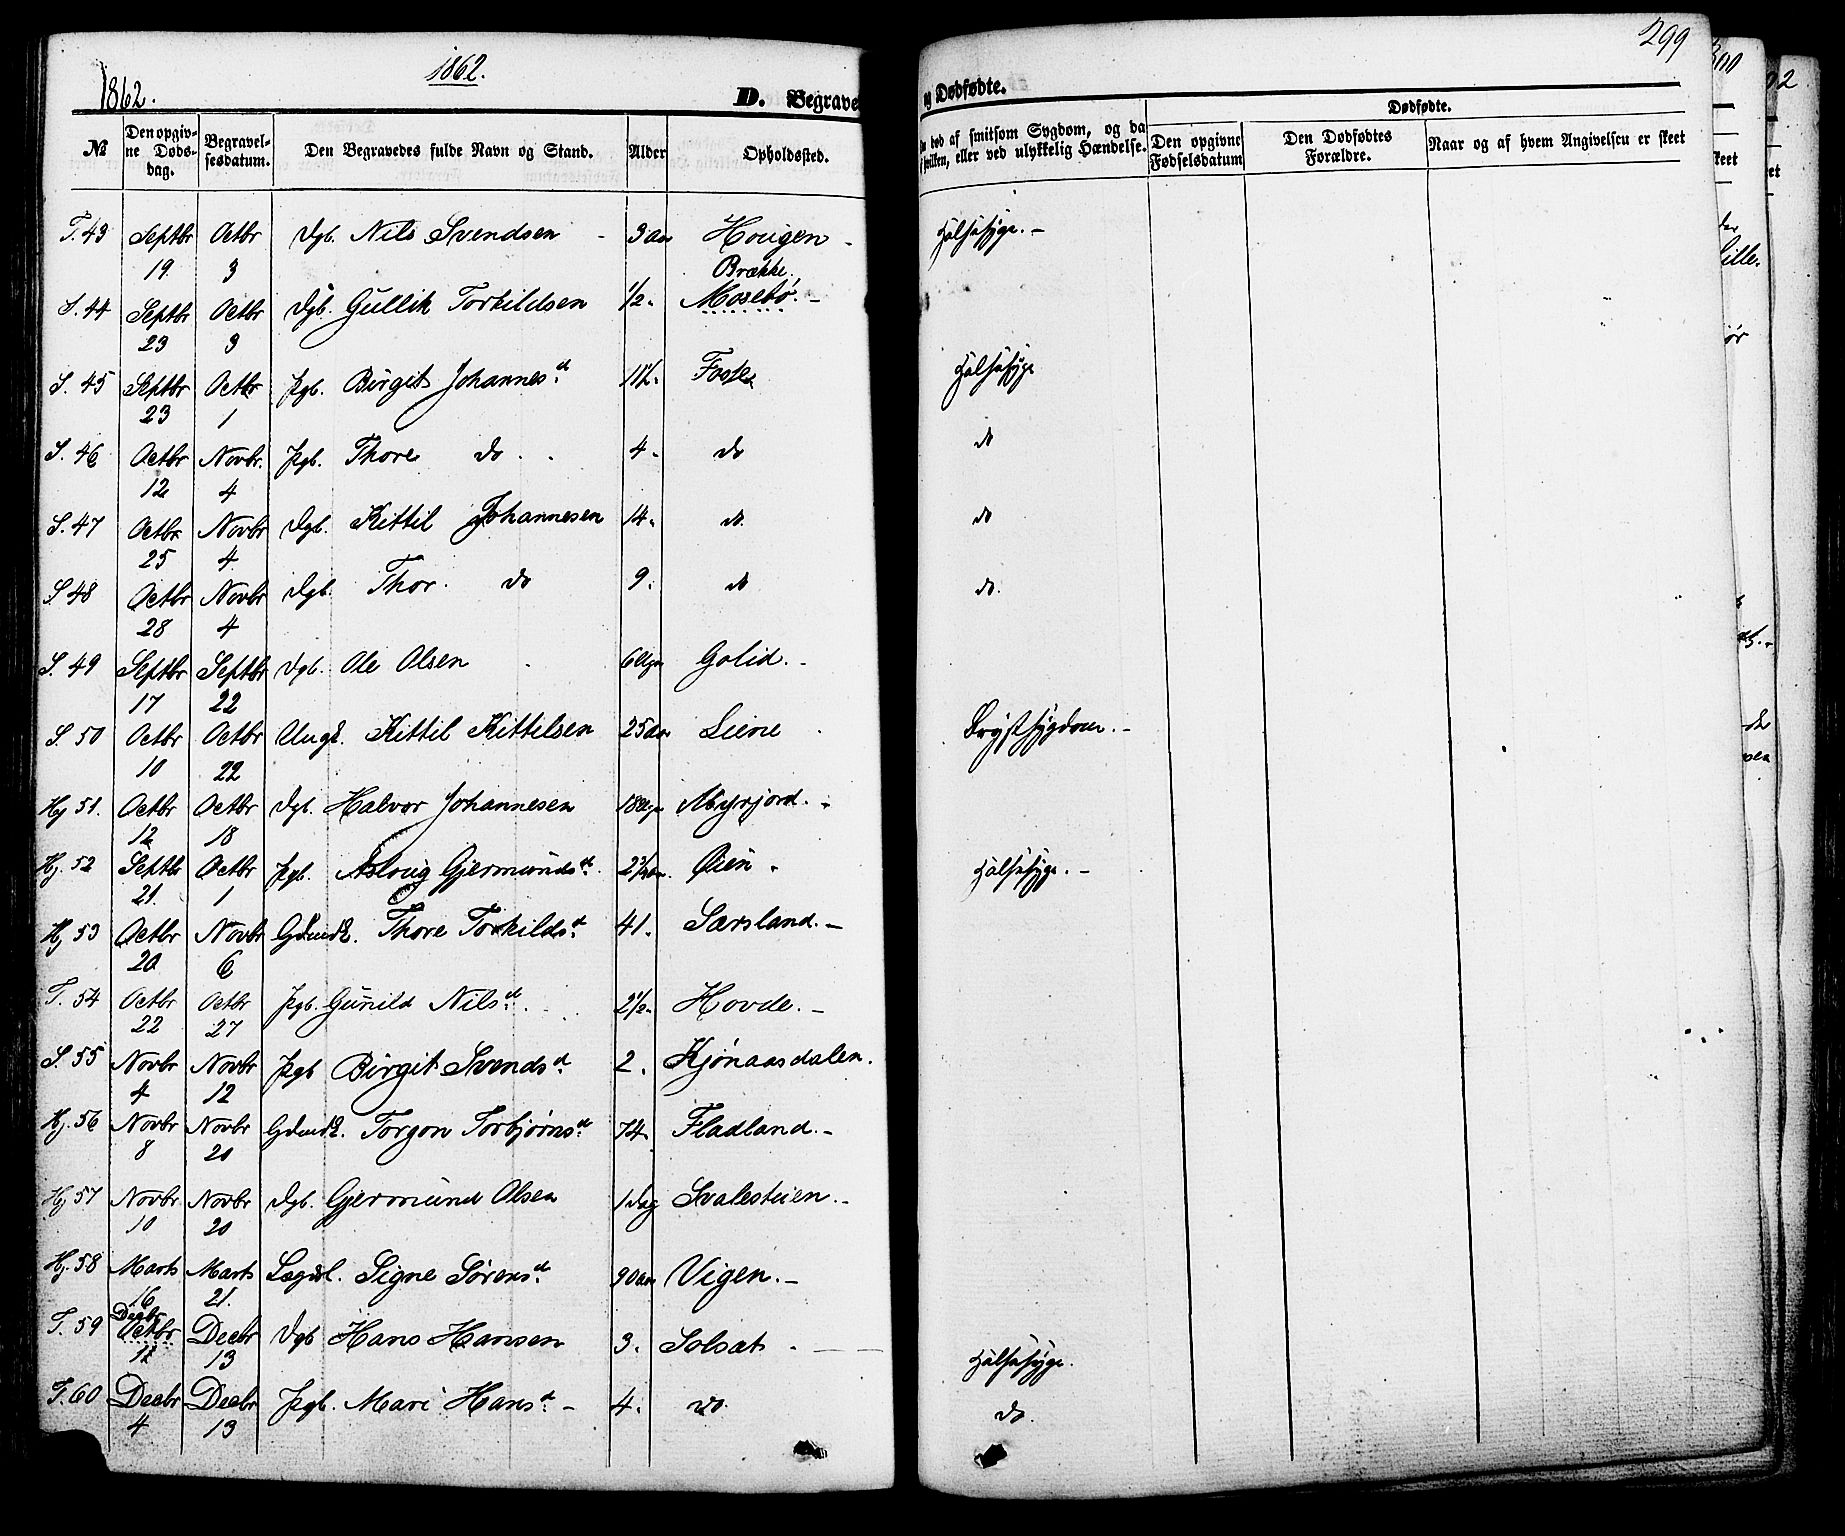 1862.
1862.
D. Begrave
№
Den opgiv-
ne Døds-
dag.
Begravel-
sesdatum.
Den Begravedes fulde Navn og Stand.
Alder
Opholdssted.
T. 43 Septbr 19. Octbr 3 Dgb. Nils Svendsen - 3 aar Hougen -
Brække.
S. 44 Septbr 23 Octbr 3 Dgb. Gullik Torkildsen 1/2 " Mosebö. -
S. 45 Septbr 23 Octbr 1 Pgb. Birgit Johannesd. 11 1/2 " Fosse
S. 46 Octbr 12 Novbr. 4 Pgb. Thore do 4 " do
S. 47 Octbr 25 Novbr 4 Dgb. Kittil Johannesen 14 " do
S. 48 Octbr 28 Novbr 4 Dgb. Thor. do 9 " do
S. 49 Septbr 17 Septbr 22 Dgb. Ole Olsen 6 Uger Golid. -
S. 50 Octbr 10 Octbr 22 Ungk. Kittil Kittilsen 25 aar Liene
Hj 51. Octbr 12 Octbr 18 Dgb. Halvor Johannesen 18 Uger Myrjord. -
Hj. 52 Septbr 21. Octbr 1 Pgb. Asloug Gjermundsd. aar. Øien
Hj 53 Octbr 20 Novbr 6 Gdmdk. Thore Torkildsd. 41. Særsland. -
T. 54 Octbr 22 Octbr 27 Pgb. Gunild Nilsd. 2 1/2 " Hovde. -
S. 55 Novbr 4 Novbr 12 Pgb Birgit Svendsd. 2. Kjönaasdalen.
Hj. 56 Novbr 8 Novbr 20 Gdmdk. Torgon Torbjörnsd. 74. Fladland. -
Hj 57 Novbr 10 Novbr 20 Dgb. Gjermund Olsen 1 Dag Svalestuen. -
Hj. 58 Marts 16 Marts 21. Lægdsl. Signe Sørensd. 90 aar Vigen. -
Decbr
T. 59 Octbr 11 Decbr 13 Dgb Hans Hansen 3. Solsat
T. 60 Decbr 4 Decbr 13 Pgb. Mari Hansd. - 4. do
299
og Dødfødte.
død af smitsom Sygdom, og da
hvilken, eller ved ulykkelig Hændelse.
Dødfødte.
Den opgivne
Fødselsdatum
Den Dødfødtes
Forældre.
Naar og af hvem Angivelsen er skeet
Halssyge. -
Halssyge
do
do
do.
Brystsygdom. -
Halssyge. -
Halssyge.
do.
300